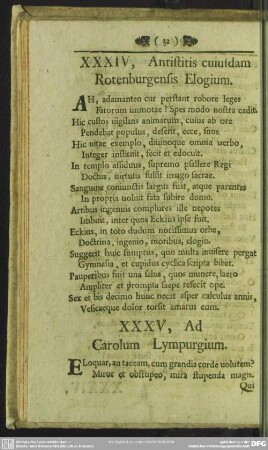 ( 32 )
XXXIV, Antistitis cuiusdam
Rotenburgensis Elogium.
AH, adamanteo cur perstant robore leges
Fatorum immotae? Spes modo nostra cadit.
Hic custos uigilans animarum, cuius ab ore
Pendebat populus, deserit, ecce, suos.
Hic uitae exemplo, diuinoque omnia uerbo,
Integer instituit, fecit et edocuit.
In templo assiduus, supremo psallere Regi
Doctus, uirtutis fulsit imago sacrae.
Sanguine coniunctis largus fuit, atque parentes
In propria uoluit sita subire domo.
Artibus ingenuis complures ille nepotes
Imbuit, inter quos Eckius ipse fuit,
Eckius, in toto dudum notissimus orbe,
Doctrina, ingenio, moribus, elogio.
Suggerit huic sumptus, quo multa inuisere pergat
Gymnasia, et cupidus cyclica scripta bibat.
Pauperibus fuit una salus, quos munere, laeto
Ampliter et prompta saepe refecit ope.
Sex et bis decimo hunc necat asper calculus annis,
Vesicaeque dolor torsit amarus eum.
XXXV, Ad
Carolum Lympurgium.
ELoquar, an taceam, cum grandia corde uolutem?
Miror et obstupeo, mira stupenda magis.
Qui